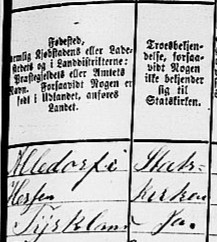 Fødested,
nemlig Kjøbstadens eller Lade-
stedets og i Landdistrikterne:
Præstegjeldets eller Amtets
Navn. Forsaavidt Nogen er
født i Udlandet, anføres
Landet.
Troesbekjen-
delse, forsaa-
vidt Nogen
ikke bekjender
sig til
Statskirken.
Stats-
Hessen
kirken
Tyskland